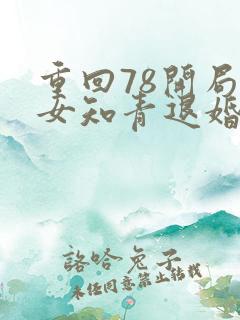 重回78開局
女知青退婚
詻哈兔子
未任同意禁止转载